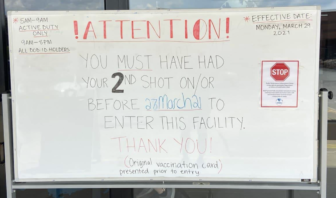 * 5AM-9AM
ACTIVE DUTY
ONLY
9AM-5PM
ALL DOD ID HOLDERS
!ATTENTION!
* EFFECTIVE DATE
MONDAY, MARCH 29
2021
YOU MUST HAVE HAD
YOUR 2ND SHOT ON/OR
BEFORE 23March21 TO
ENTER THIS FACILITY.
THANK YOU!
(Original vaccination card)
presented prior to entry
STOP